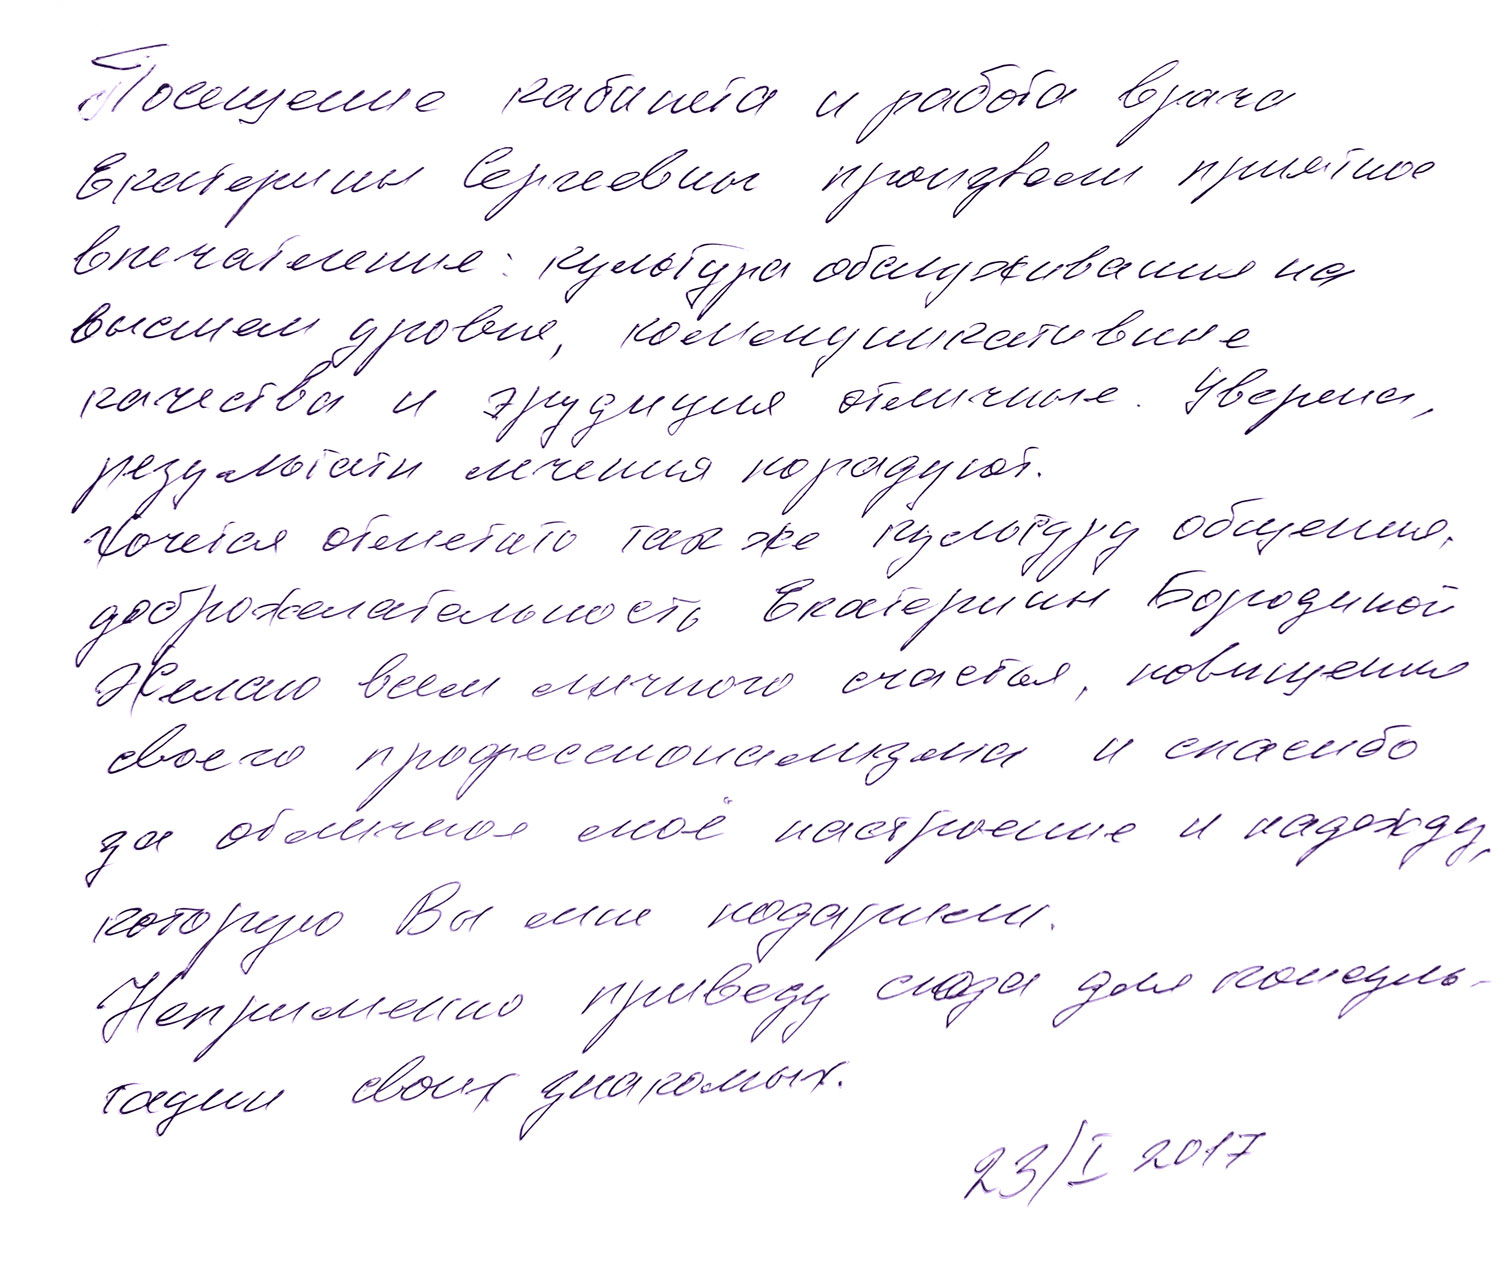 Посещение кабинета и работа врача
Екатерины Сергеевны произвели приятное
впечатление: культура обслуживания на
высшем уровне, коммуникативные
качества и эрудиция отличные. Уверена,
результаты лечения порадуют.
Хочется отметить также культуру общения,
доброжелательность Екатерины Бородиной
Желаю всем личного счастья, повышения
своего профессионализма и спасибо
за отличное моё настроение и надежду,
которую Вы мне подарили.
Непременно приведу сюда для консуль-
тации своих знакомых.
23/I 2017